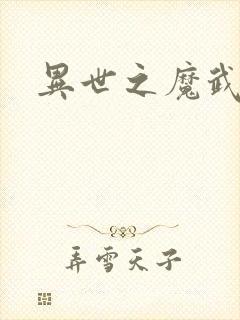 異世之魔武
弄雪天子